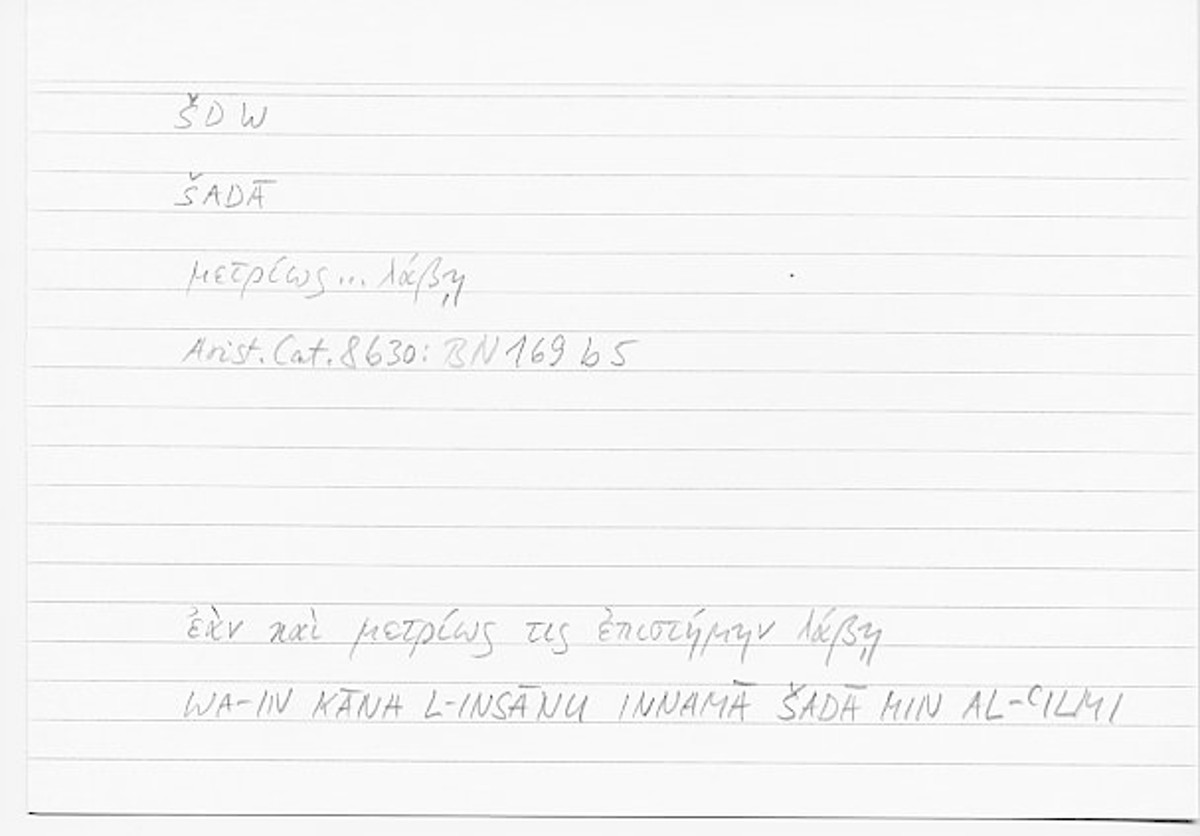 ŠDW
ŠADĀ
μετρίως... λάβῃ
Arist. Cat. 8b30: BN 169 b 5
ἐὰν καὶ μετρίως τις ἐπιστήμην λάβῃ
WA-IN KĀNA L-INSĀNU INNAMĀ ŠADĀ MIN AL-ʿILMI